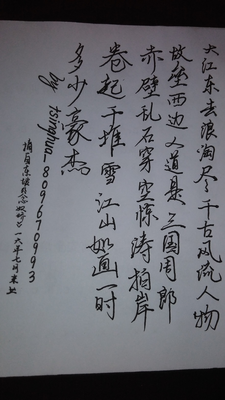 大江东去浪淘尽千古风流人物
故垒西边人道是三国周郎
赤壁乱石穿空惊涛拍岸
卷起千堆雪江山如画一时
多少豪杰
by tsinghua_809670993
摘自念奴娇一六年七月